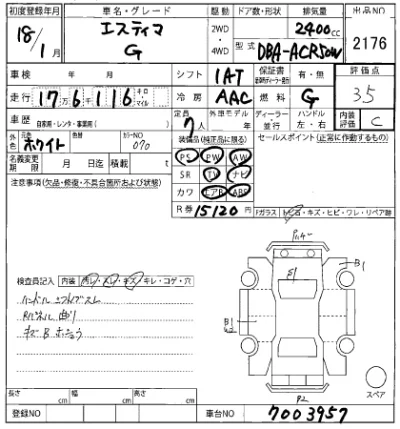 初度登録年月 車名・グレード 駆動 ドア数・形状 排気量 出品NO
18/1月 エスティマ G 2WD・4WD 2400cc 2176
型式 DBA-ACR50W
車検 年 月 シフト 1AT 保証書 有・無 評価点
走行 17万6千116 キロ・マイル 冷房 AAC 燃料 G 3.5
車歴 自家用・レンタ・事業用( ) 定員 7人 外車モデル ディーラー・並行 ハンドル 左・右 内装評価 C
外色 元色 ホワイト カラーNO 070 装備品(純正品に限る) セールスポイント(正常に作動するもの)
名義変更期限 月 日迄 積載 t PS PW AW
注意事項(欠品・修復・不具合箇所および状態) SR TV ナビ
カワ エアB ABS
R券 15120円
Fガラス トビ石・キズ・ヒビ・ワレ・リペア跡
検査員記入 内装 汚レ・スレ・キズ・キレ・コゲ・穴
ハンドル
Rパネル 曲り
キズB
B1
B1
スペア
長さ cm 幅 cm 高さ cm
登録NO 車台NO 7003957